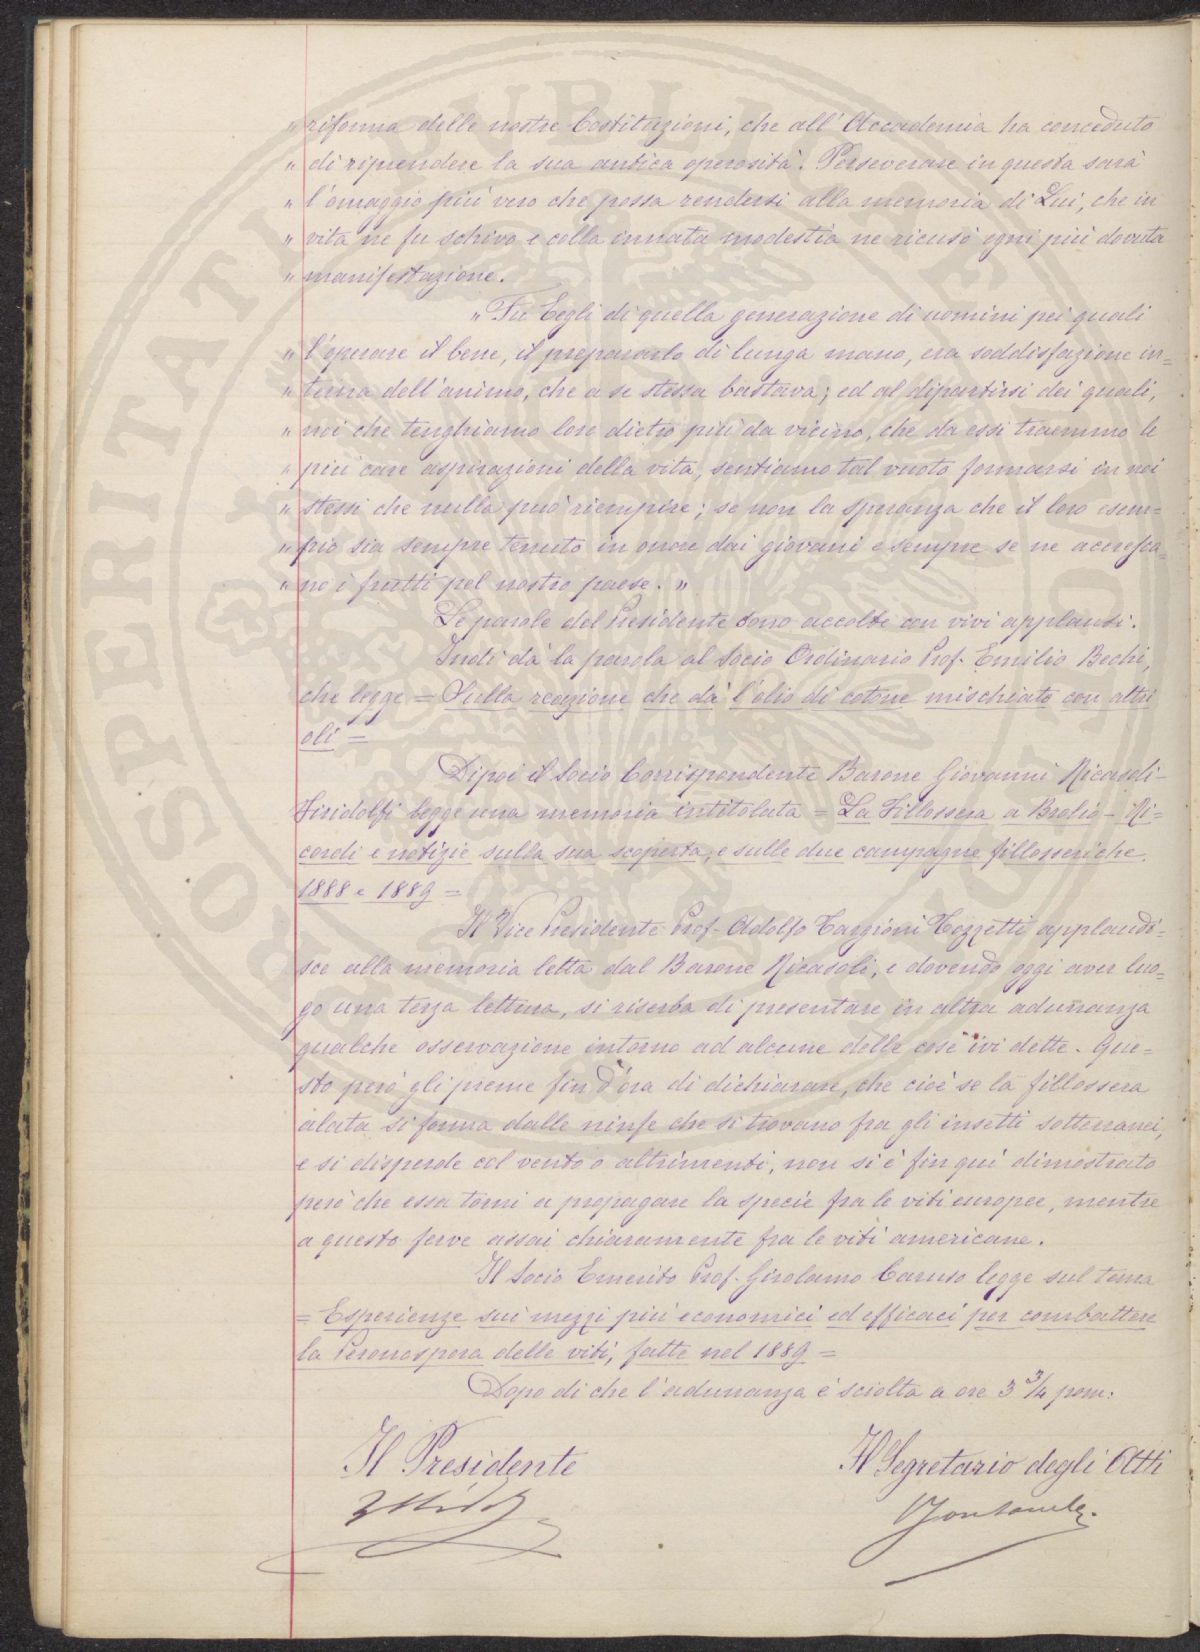 " riforma delle nostre Costituzioni, che all'Accademia ha conceduto
" di riprendere la sua antica operosità. Perseverare in questa sarà
" l'omaggio più vero che possa rendersi alla memoria di Lui, che in
" vita ne fu schivo e colla innata modestia ne ricusò ogni più dovuta
" manifestazione.
" Fu Eegli di quella generazione di uomini pei quali
" l'operare il bene, il prepararlo di lunga mano, era soddisfazione in=
" terna dell'animo, che a se stessa bastava; ed al dipartirsi dei quali,
" noi che tenghiamo loro dietro più da vicino, che da essi traemmo le
" più care aspirazioni della vita, sentiamo tal vuoto formarsi in noi
" stessi che nulla può riempire; se non la speranza che il loro esem=
" pio sia sempre tenuto in onore dai giovani e sempre se ne accresca=
" no i frutti pel nostro paese. "
Le parole del Presidente sono accolte con vivi applausi.
Indi dà la parola al Socio Ordinario Prof. Emilio Bechi,
che legge = Sulla reazione che dà l'olio di cotone mischiato con altri
oli =
Dipoi il Socio Corrispondente Barone Giovanni Ricasoli-
Firidolfi legge una memoria intitolata = La Fillossera a Brolio - Ri=
cordi e notizie sulla sua scoperta, e sulle due campagne fillosseriche
1888 e 1889 =
Il Vice Presidente Prof. Adolfo Targioni Tozzetti applaudi=
sce alla memoria letta dal Barone Ricasoli, e dovendo oggi aver luo=
go una terza lettura, si riserba di presentare in altra adunanza
qualche osservazione intorno ad alcune delle cose ivi dette. Que=
sto però gli preme fin d'ora di dichiarare, che cioè se la fillossera
alata si forma dalle ninfe che si trovano fra gli insetti sotterranei,
e si disperde col vento o altrimenti, non si è fin qui dimostrato
però che essa torni a propagare la specie fra le viti europee, mentre
a questo serve assai chiaramente fra le viti americane.
Il Socio Emerito Prof. Girolamo Caruso legge sul tema
= Esperienze sui mezzi più economici ed efficaci per combattere
la Peronospora delle viti, fatte nel 1889 =
Dopo di che l'adunanza è sciolta a ore 3 3/4 pom:
Il Presidente
Il Segretario degli Atti